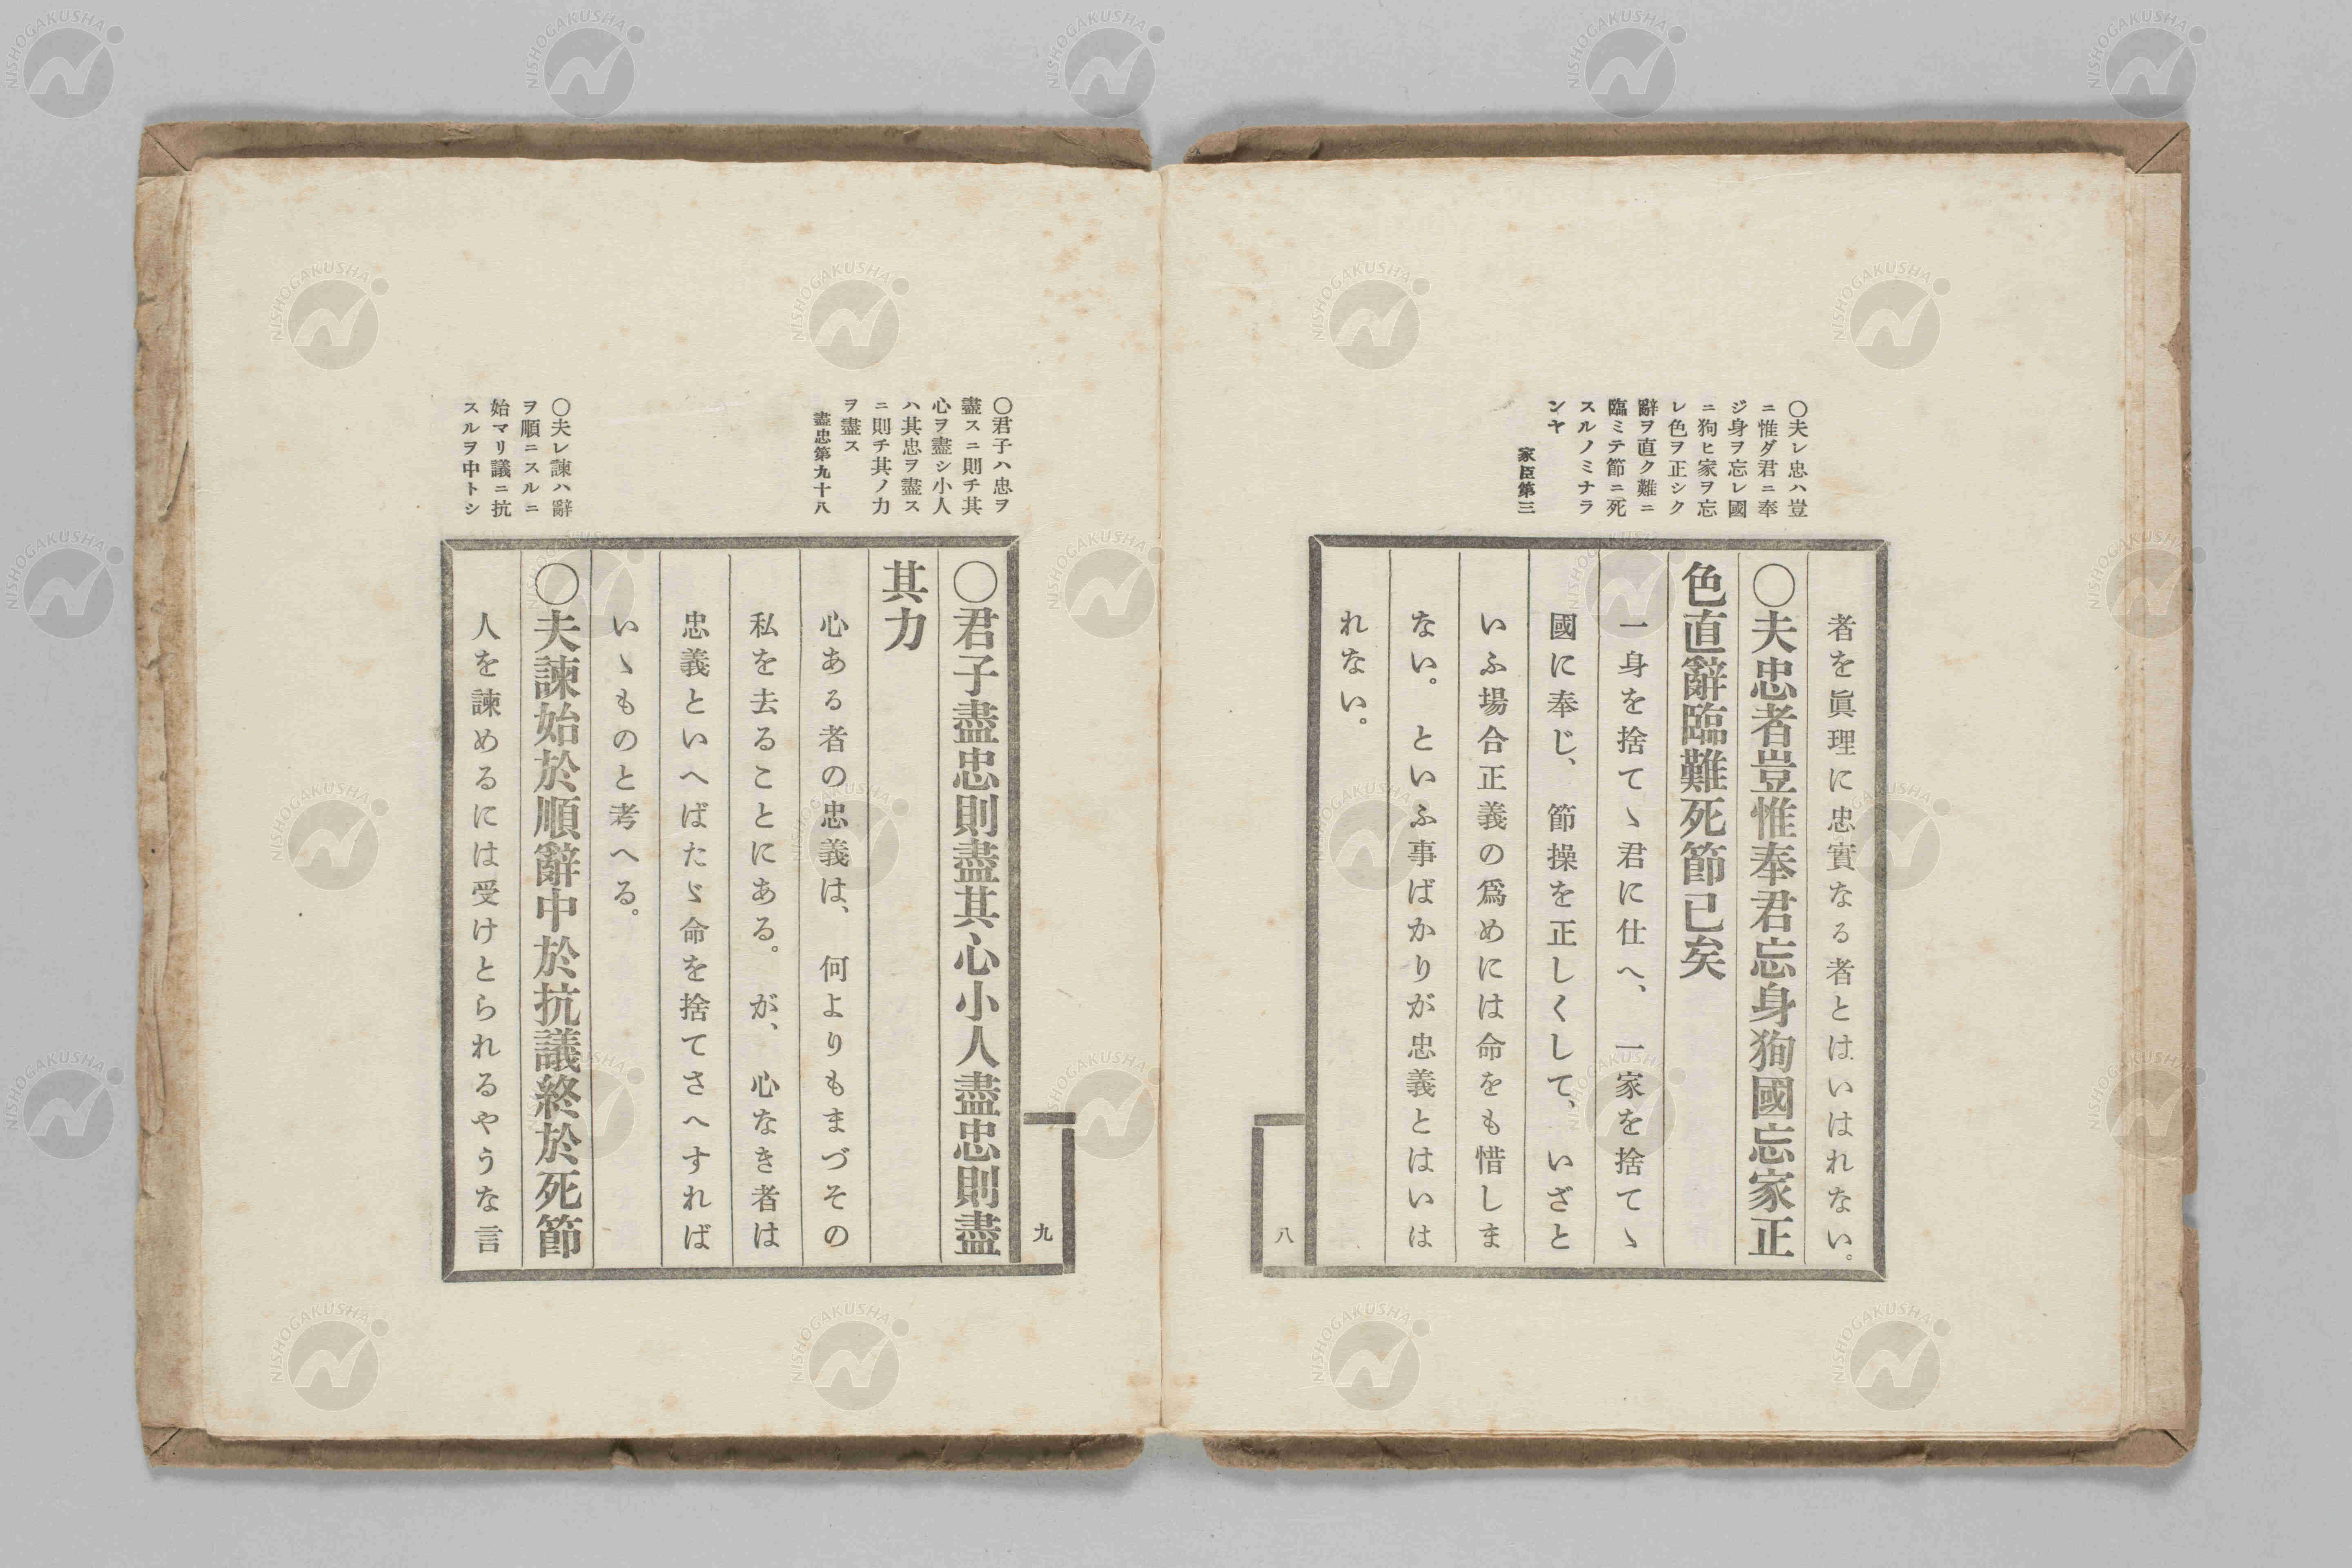 〇夫レ忠ハ豈
ニ惟ダ君ニ奉
ジ身ヲ忘レ國
ニ狥ヒ家ヲ忘
レ色ヲ正シク
辭ヲ直ク難ニ
臨ミテ節ニ死
スルノミナラ
ンヤ
家臣第三
者を眞理に忠實なる者とはいはれない。
〇夫忠者豈惟奉君忘身狥國忘家正
色直辭臨難死節已矣
一身を捨てゝ君に仕へ、一家を捨てゝ
國に奉じ、節操を正しくして、いざと
いふ場合正義の爲めには命をも惜しま
ない。といふ事ばかりが忠義とはいは
れない。
八
〇君子ハ忠ヲ
盡スニ則チ其
心ヲ盡シ小人
ハ其忠ヲ盡ス
ニ則チ其ノ力
ヲ盡ス
盡忠第九十八
〇夫レ諫ハ辭
ヲ順ニスルニ
始マリ議ニ抗
スルヲ中トシ
九
〇君子盡忠則盡其心小人盡忠則盡
其力
心ある者の忠義は、何よりもまづその
私を去ることにある。が、心なき者は
忠義といへばたゞ命を捨てさへすれば
いゝものと考へる。
〇夫諫始於順辭中於抗議終於死節
人を諫めるには受けとられるやうな言
NISHOGAKUSHA